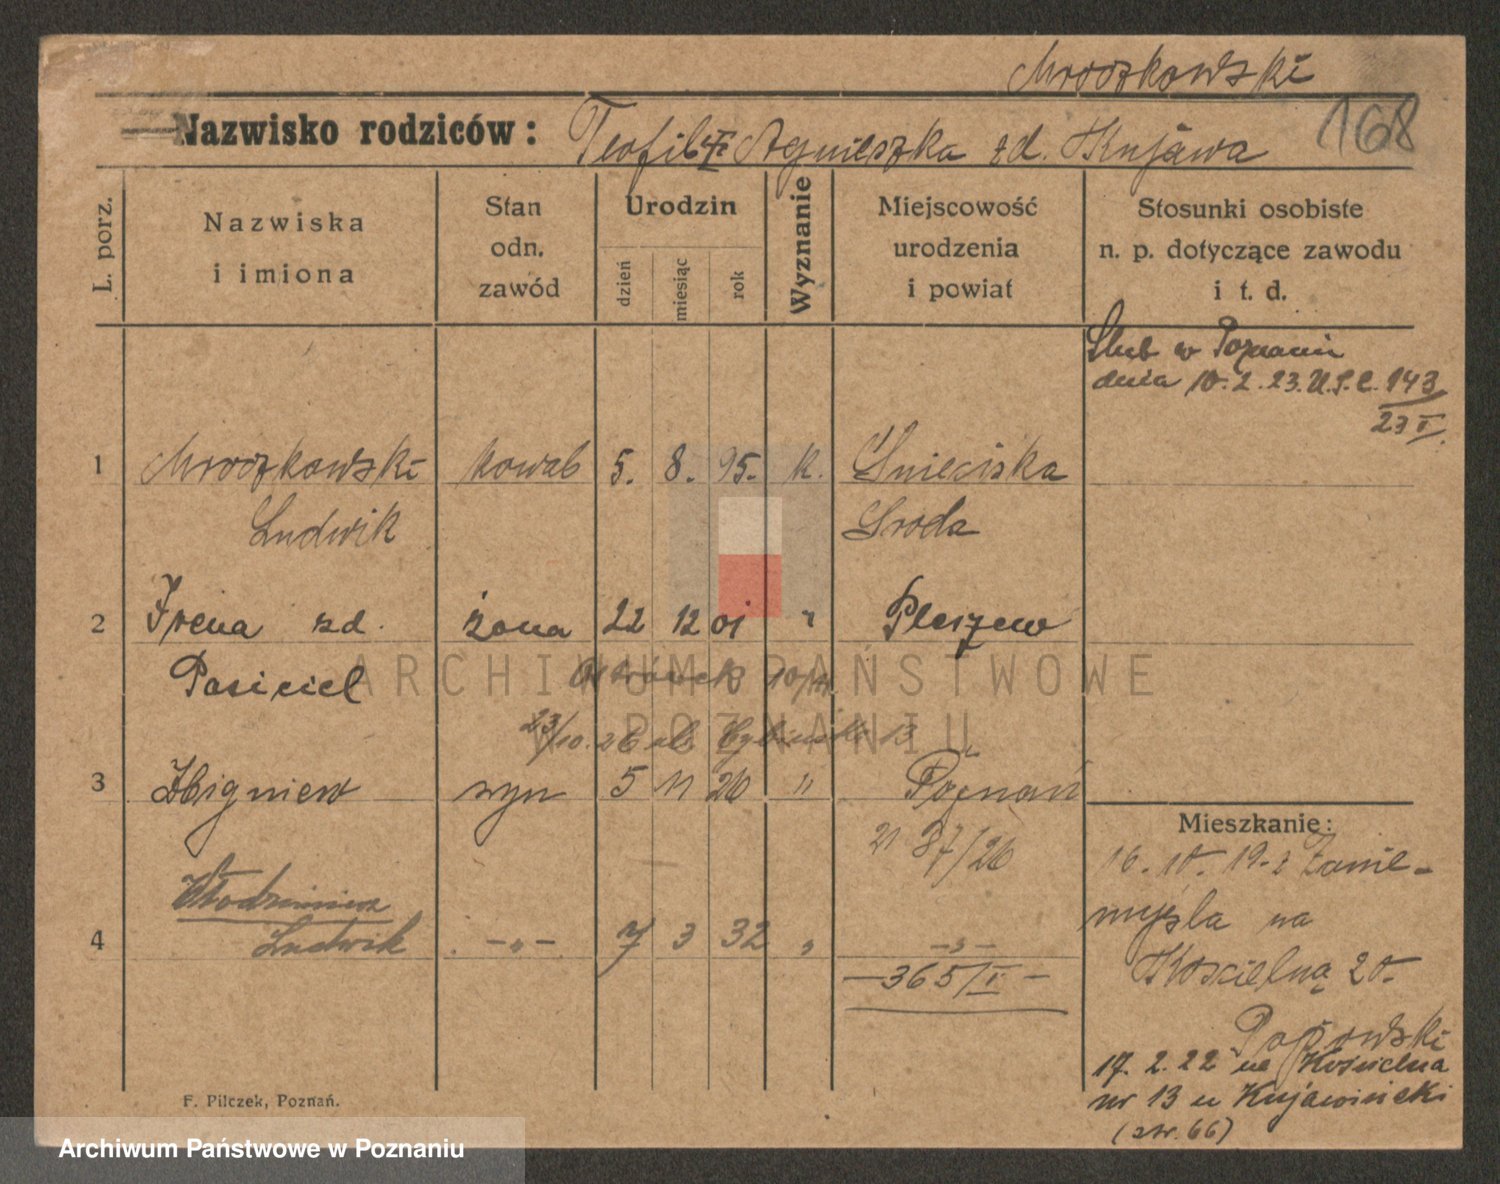 Mroczkowski
Nazwisko rodziców: Teofil i Agnieszka zd. Kujawa
168
L. porz.
Nazwiska
i imiona
Stan
odn.
zawód
Urodzin
dzień
miesiąc
rok
Wyznanie
Miejscowość
urodzenia
i powiat
Stosunki osobiste
n. p. dotyczące zawodu
i t. d.
Ślub w Poznaniu
dnia 10.2.23. U.S.C. 143
23 I.
1 Mroczkowski kowal 5. 8. 95. K. Śnieciska
Ludwik Środa
2 Irena zd. żona 22 12 01 " Pleszew
Pasiciel
23/10.26 13
3 Zbigniew syn 5 11 26 " Poznań
87/26
Włodzimierz
4 Ludwik -„- 7 3 32 „ -„-
-365/I-
Mieszkanie:
16. 10. 19. z Zanie-
myśla na
Kościelną 20.
17. 2. 22 na Kościelna
nr 13 u Kujawiński
(str. 66)
F. Pilczek, Poznań.
ARCHIWUM PAŃSTWOWE
W POZNANIU
Archiwum Państwowe w Poznaniu